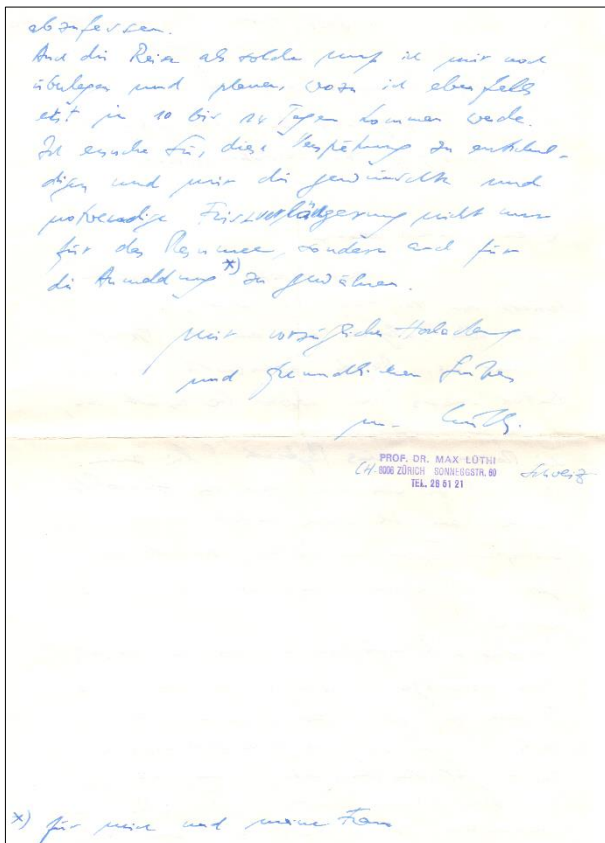 abzufassen.
Auch die Reise als solche muss ich mir noch
überlegen und planen, wozu ich ebenfalls
erst in 10 bis 14 Tagen kommen werde.
Ich ersuche Sie, diese Verspätung zu entschul-
digen und mir die gewünschte und
notwendige Fristverlängerung nicht nur
für das Resumee, sondern auch für
die Anmeldung *) zu gewähren.
Mit vorzüglicher Hochachtung
und freundlichen Grüßen
M. Lüthi.
PROF. DR. MAX LÜTHI
CH-8006 ZÜRICH SONNEGGSTR. 60 Schweiz
TEL. 28 51 21
*) für mich und meine Frau